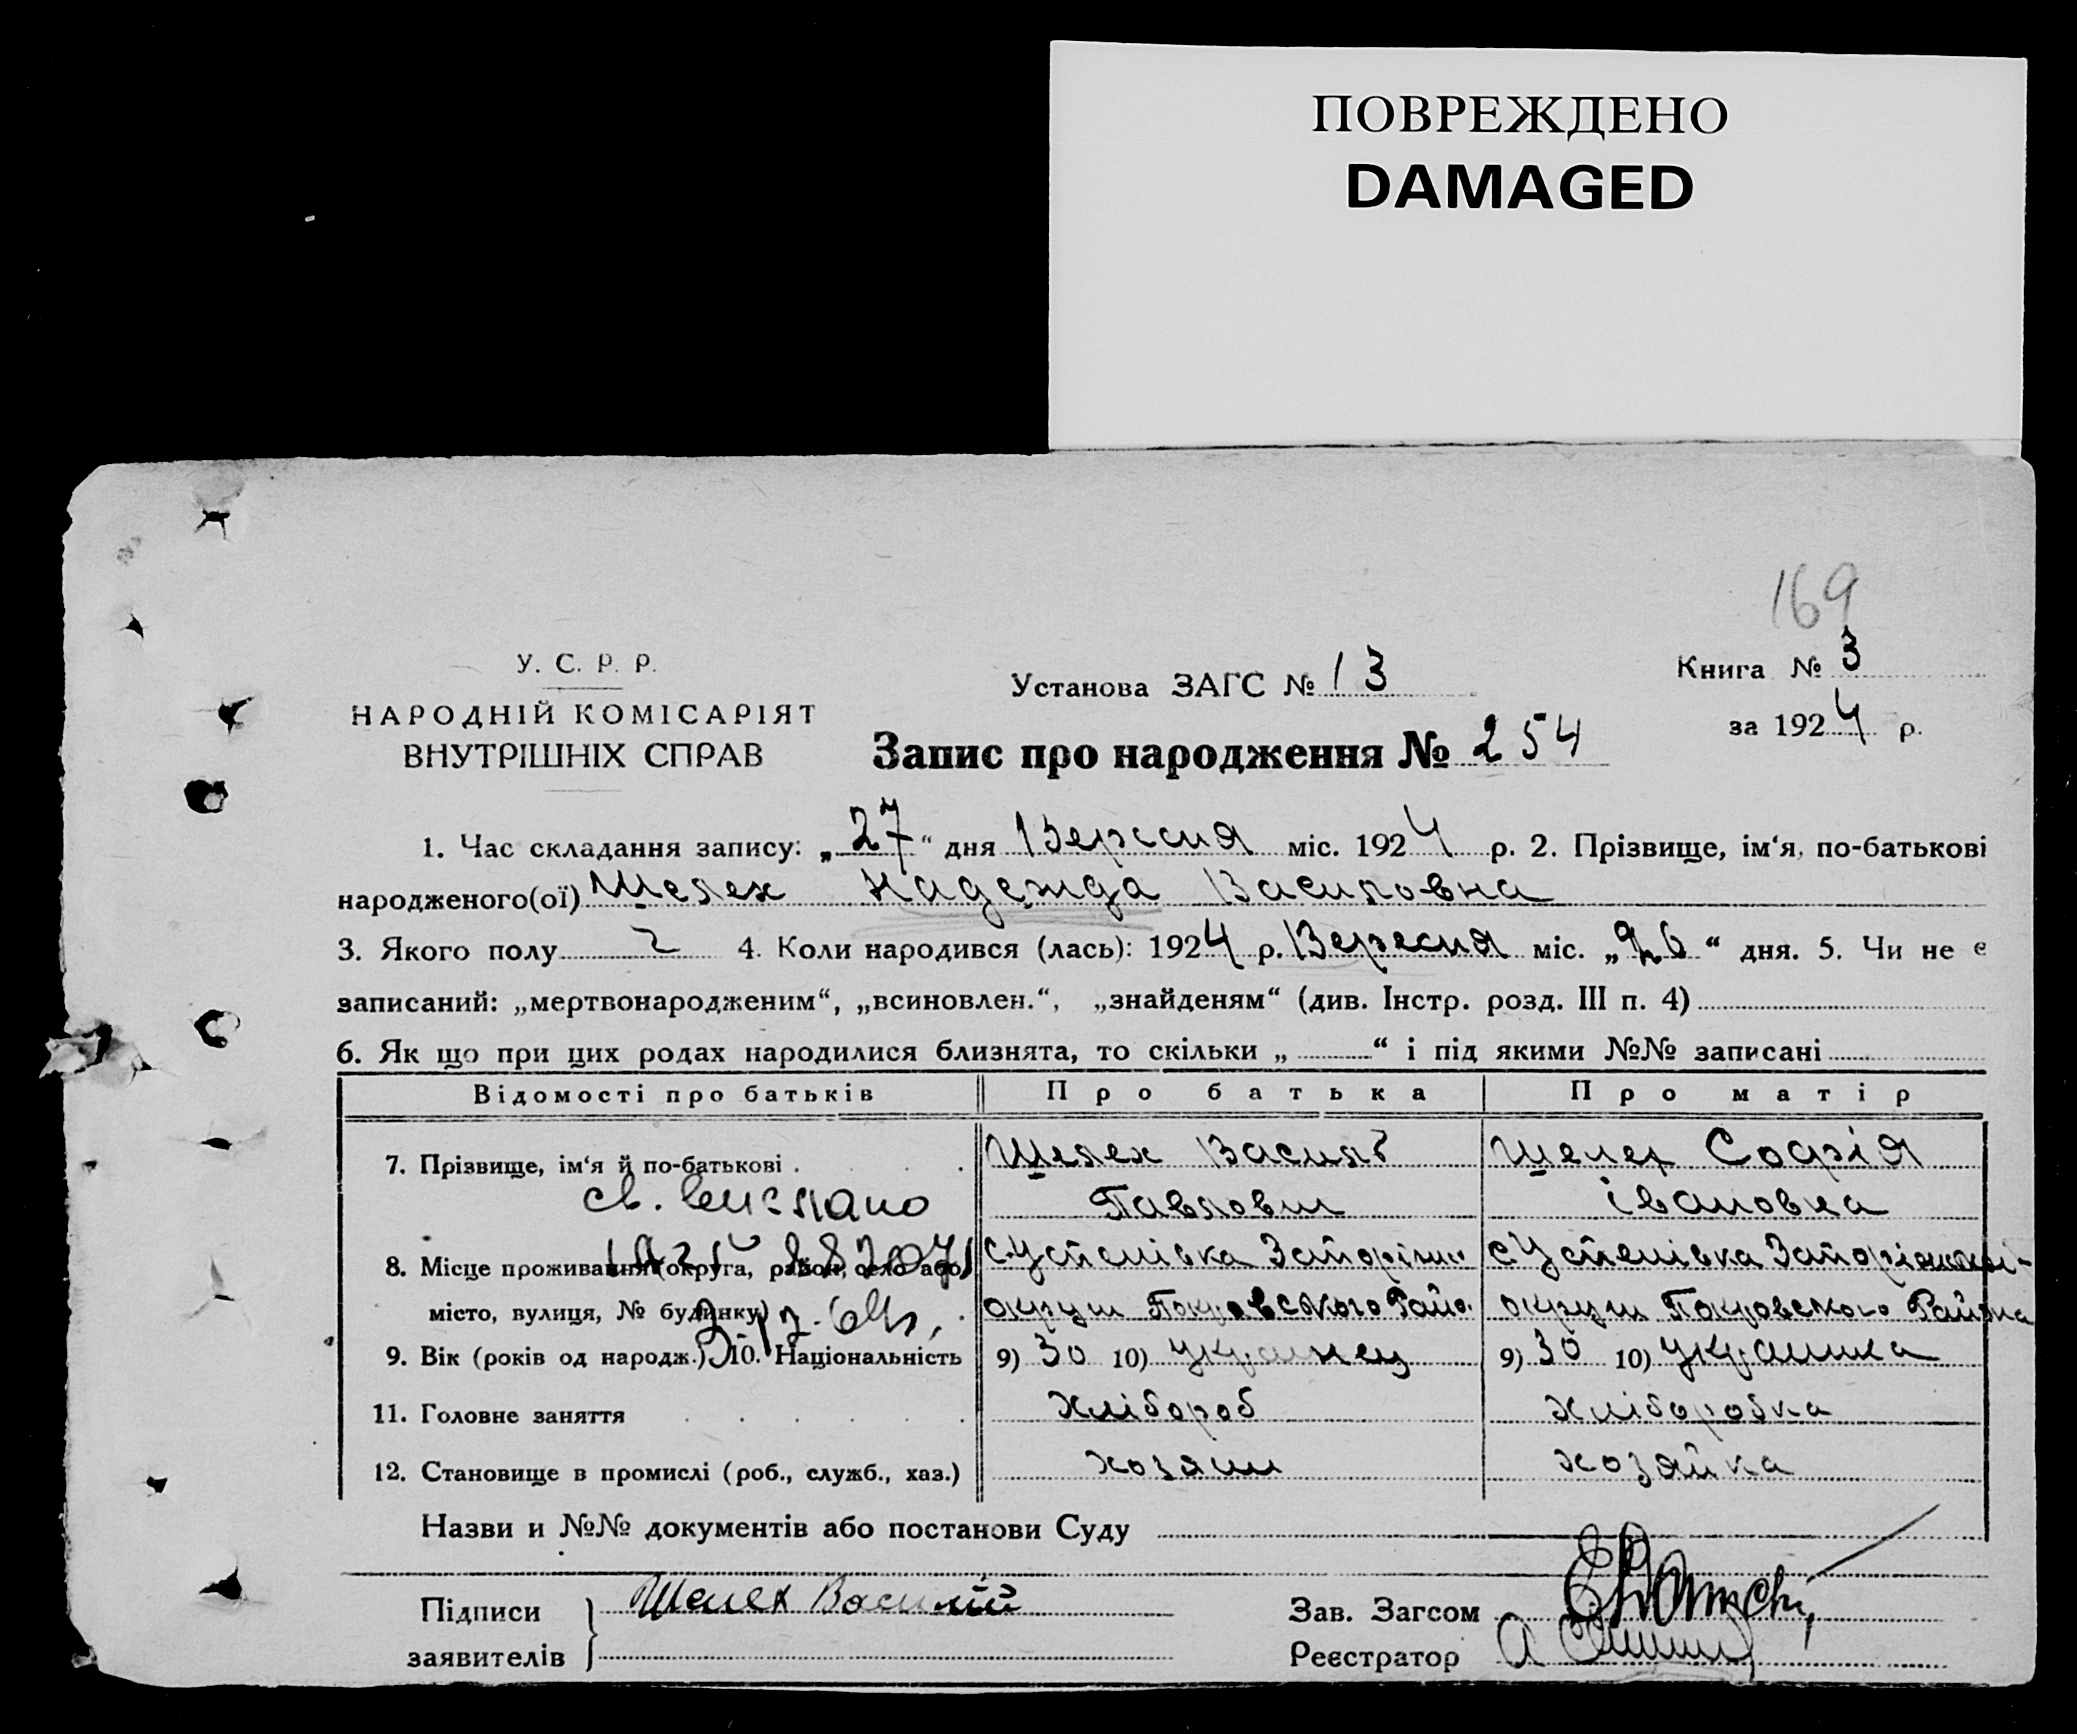 ПОВРЕЖДЕНО
DAMAGED
169
У. С. Р. Р.
НАРОДНІЙ КОМІСАРІЯТ
ВНУТРІШНІХ СПРАВ
Установа ЗАГС № 13
Книга № 3
за 1924 р.
Запис про народження № 254
1. Час складання запису: „27“ дня Вересня міс. 1924 р. 2. Прізвище, ім‘я, по-батькові
народженого(ої) Шелех Надежда Василовна
3. Якого полу 2 4. Коли народився (лась): 1924 р. Вересня міс. „26“ дня. 5. Чи не є
записаний: „мертвонародженим“, „всиновлен.“, „знайденям“ (див. Інстр. розд. III п. 4)
6. Як що при цих родах народилися близнята, то скільки „ “ і під якими №№ записані
Відомості про батьків Про батька Про матір
7. Прізвище, ім‘я й по-батькові Шелех Василь Шелех Софія
св. вислано Павлович Івановна
8. Місце проживання (округа, район, село або с. Успенівка с Успенівка
місто, вулиця, № будинку) округи Покровського округи Покровского Района
9. Вік (років од народж.) 10. Національність 9) 30 10) українец 9) 30 10) українка
11. Головне заняття хлібороб хліборобка
12. Становище в промислі (роб., служб., хаз.) хозяин хозяйка
Назви и №№ документів або постанови Суду
Підписи Шелех Василій
заявителів
Зав. Загсом
Реєстратор